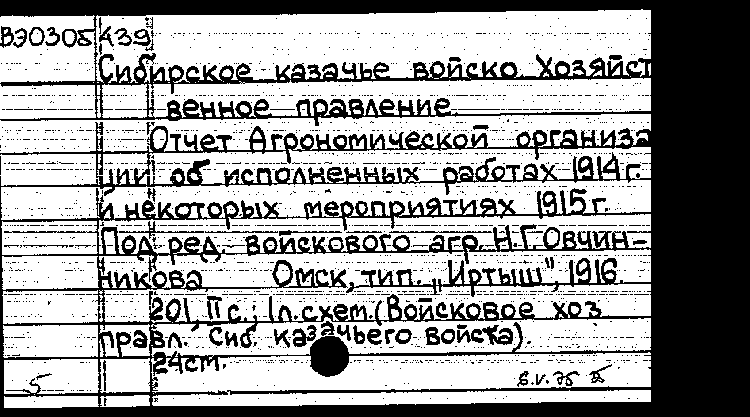 ВЭ0305 439
Сибирское казачье войско. Хозяйст
венное правление.
Отчет Агрономической организа
ции об исполненных работах 1914 г.
и некоторых мероприятиях 1915 г.
Под ред. войскового агр. Н.Г. Овчин-
никова Омск, тип. „Иртыш", 1916.
201, II с.; 1 л. схем. (Войсковое хоз.
правл. Сиб. казачьего войска).
24 см.
5